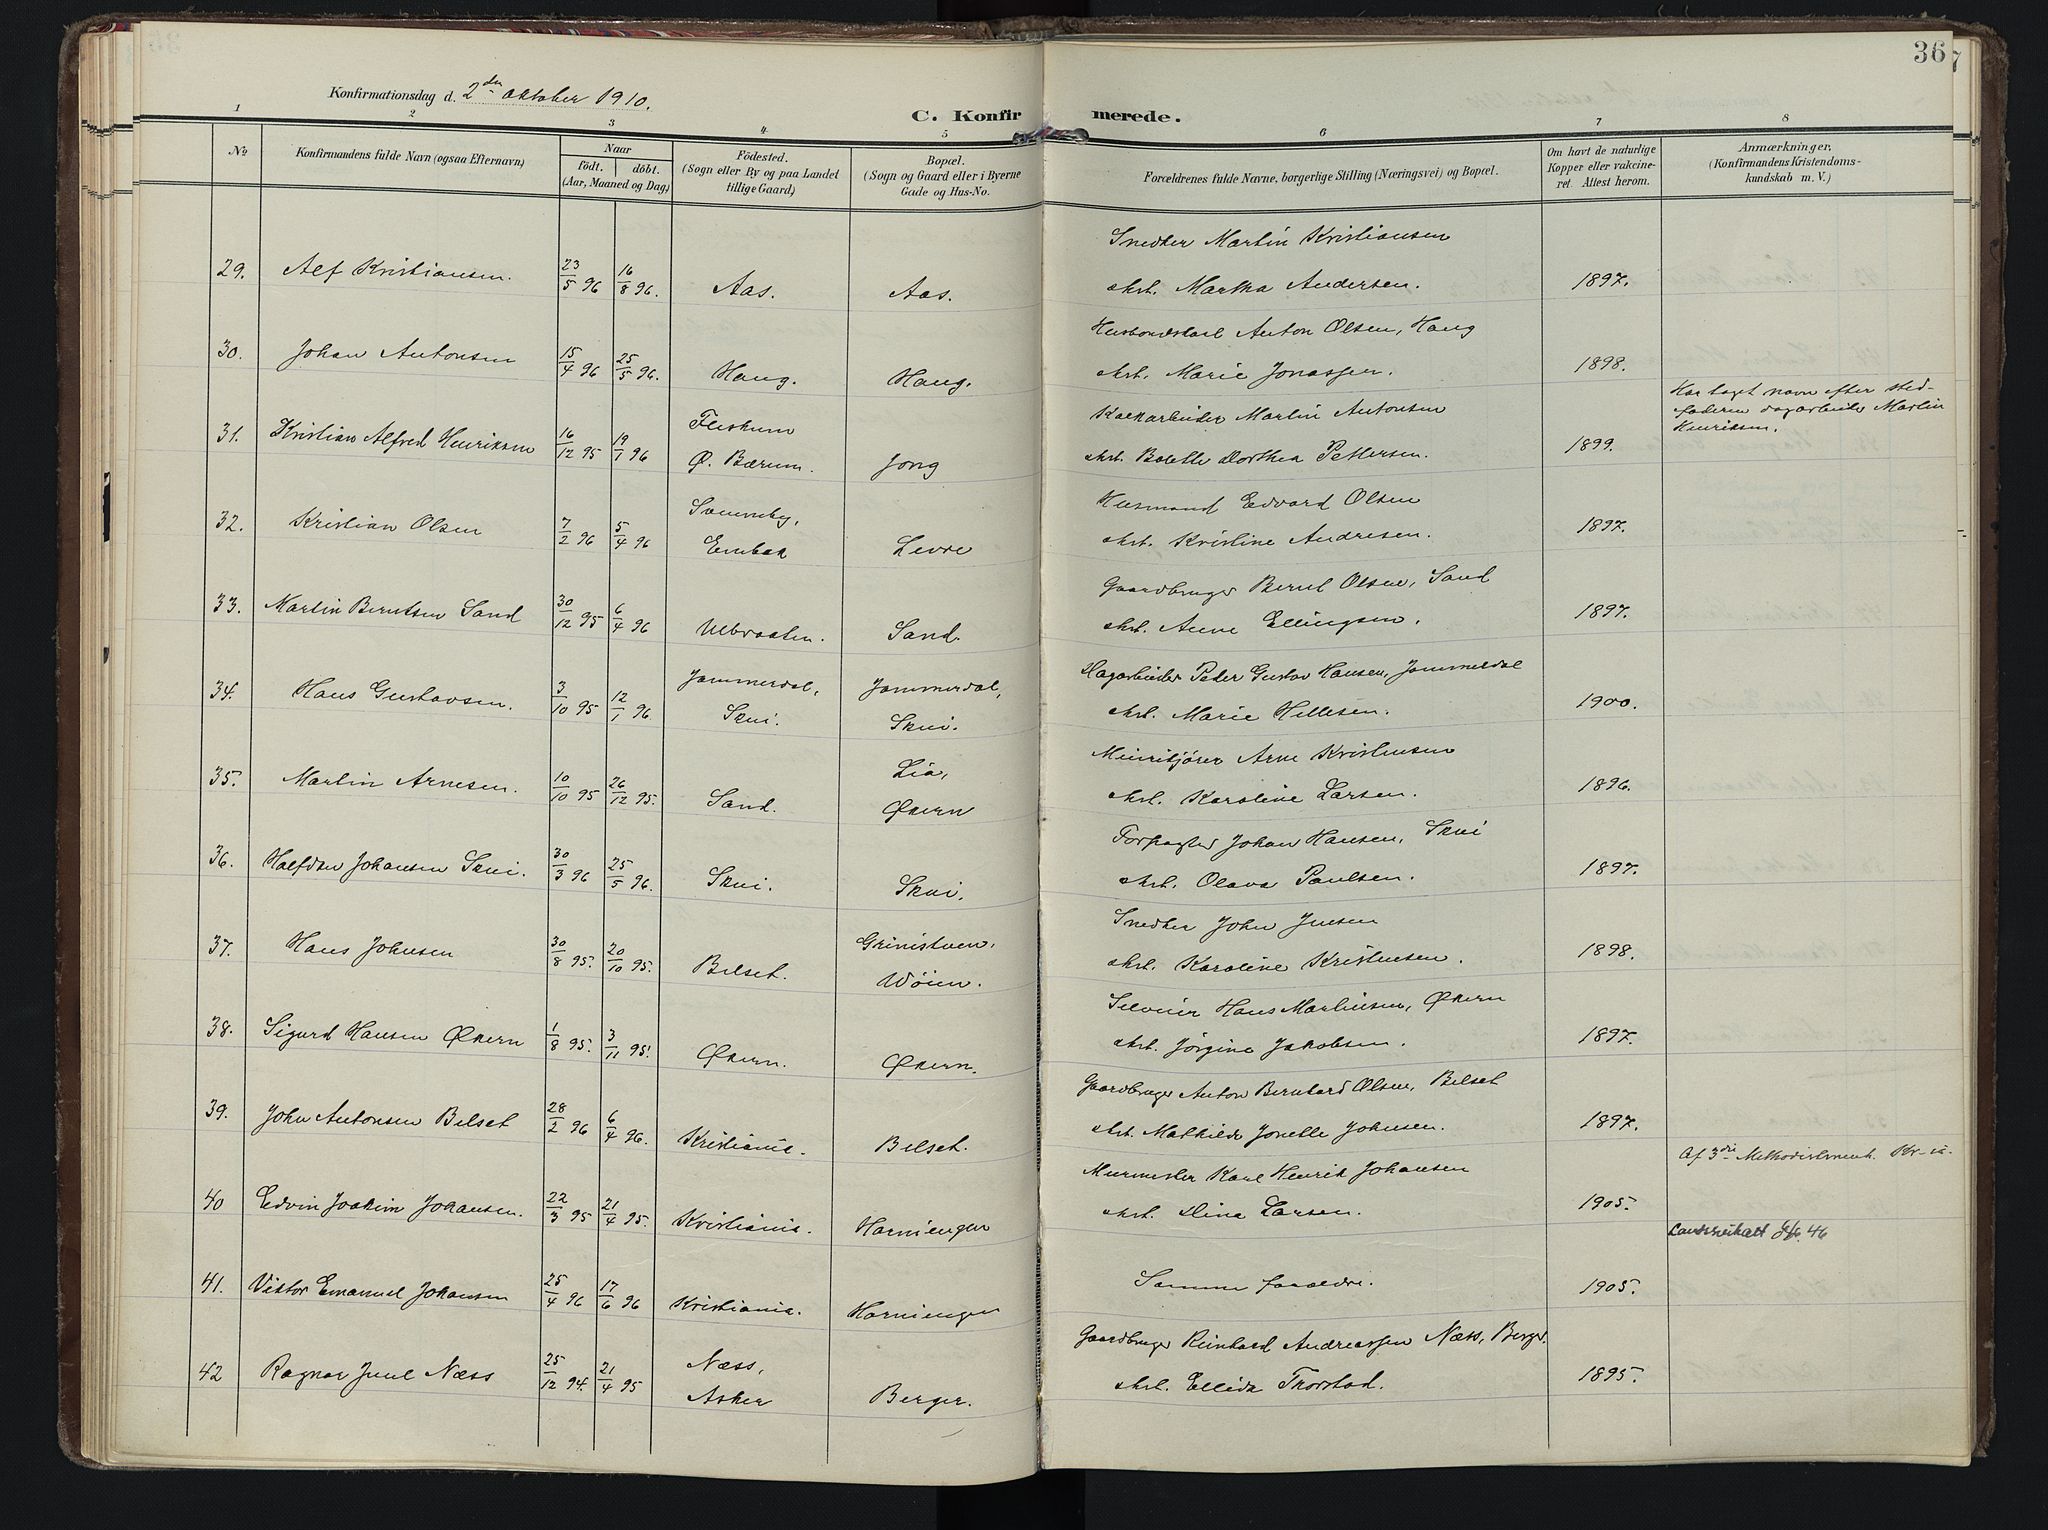 36
Konfirmationsdag d. 2den Oktober 1910.
C. Konfirmerede.
1 2 3 4 5 6 7 8
No
Konfirmandens fulde Navn (ogsaa Efternavn)
Naar
födt. döbt.
(Aar, Maaned og Dag)
Födested.
(Sogn eller By og paa Landet
tillige Gaard)
Bopæl.
(Sogn og Gaard eller i Byerne
Gade og Hus-No.
Forældrenes fulde Navne, borgerlige Stilling (Næringsvei) og Bopæl.
Om havt de naturlige
Kopper eller vakcine-
ret. Attest herom.
Anmærkninger.
(Konfirmandens Kristendoms-
kundskab m. V.)
Snedker Martin Kristiansen
29. Alf Kristiansen. 23/5 96 16/8 96. Aas. Aas. Mart. Martha Andersen. 1897.
Husbondskarl Anton Olsen, Haug
30. Johan Antonsen 15/4 96 25/5 96. Haug. Haug. Marie Jonassen. 1898.
Har taget navn efter sted-
faderen dagarbeider Martin
Henriksen.
Kalkarbeider Martin Antonsen
31. Kristian Alfred Henriksen 16/12 95 19/1 96 Fleskum
Ø. Bærum. Jong Bolette Dorthea Pettersen. 1899.
Husmand Edvard Olsen
32. Kristian Olsen 7/2 96 5/4 96 Enebak Levre Kristine Andresen. 1897.
Gaardbruger Bernt Olsen, Sand
33. Martin Berntsen Sand 30/12 95 6/4 96 Ulbraaten. Sand. Anne Ellingsen. 1897.
Dagarbeider Peder Gustav Hansen, Jammerdal
34. Hans Gustavsen. 3/10 95 12/1 96 Jammerdal,
Skui. Jammerdal,
Skui. Marie Hillesen. 1900.
Arne Kristensen
35. Martin Arnesen. 10/10 95 26/12 95. Sand. Lia,
Økern Karoline Larsen. 1896.
Forpagter Johan Hansen, Skui
36. Halfdan Johansen Skui. 30/3 96 25/5 96. Skui. Skui. Olava Paulsen. 1897.
Snedker John Jensen
37. Hans Johnsen 30/8 95. 20/10 95. Belset. Grinistuen,
Wøien. Karoline Kristensen. 1898.
Selveier Hans Martinsen, Økern
38. Sigurd Hansen Økern 1/8 95. 3/11 95. Økern. Økern. Jørgine Jakobsen. 1897.
Gaardbruger Anton Bernhard Olsen, Belset
39. John Antonsen Belset 28/2 96 6/4 96. Kristiania. Belset. Mathilde Jonette Johnsen. 1897.
Af 3die Methodistmenh. Kr-ia.
Murmester Karl Henrik Johansen
40 Edvin Joakim Johansen. 22/3 95 21/4 95. Kristiania. Horniengen Dina Larsen. 1905.
46
41. Viktor Emanuel Johansen 25/4 96 17/6 96 Kristiania. Horniengen Samme forældre. 1905.
Gaardbruger Reinhard Andreassen Næss, Berger.
42 Ragnar Juul Næss 25/12 94. 21/4 95 Næss,
Asker Berger. Ellida Thorstad. 1895.